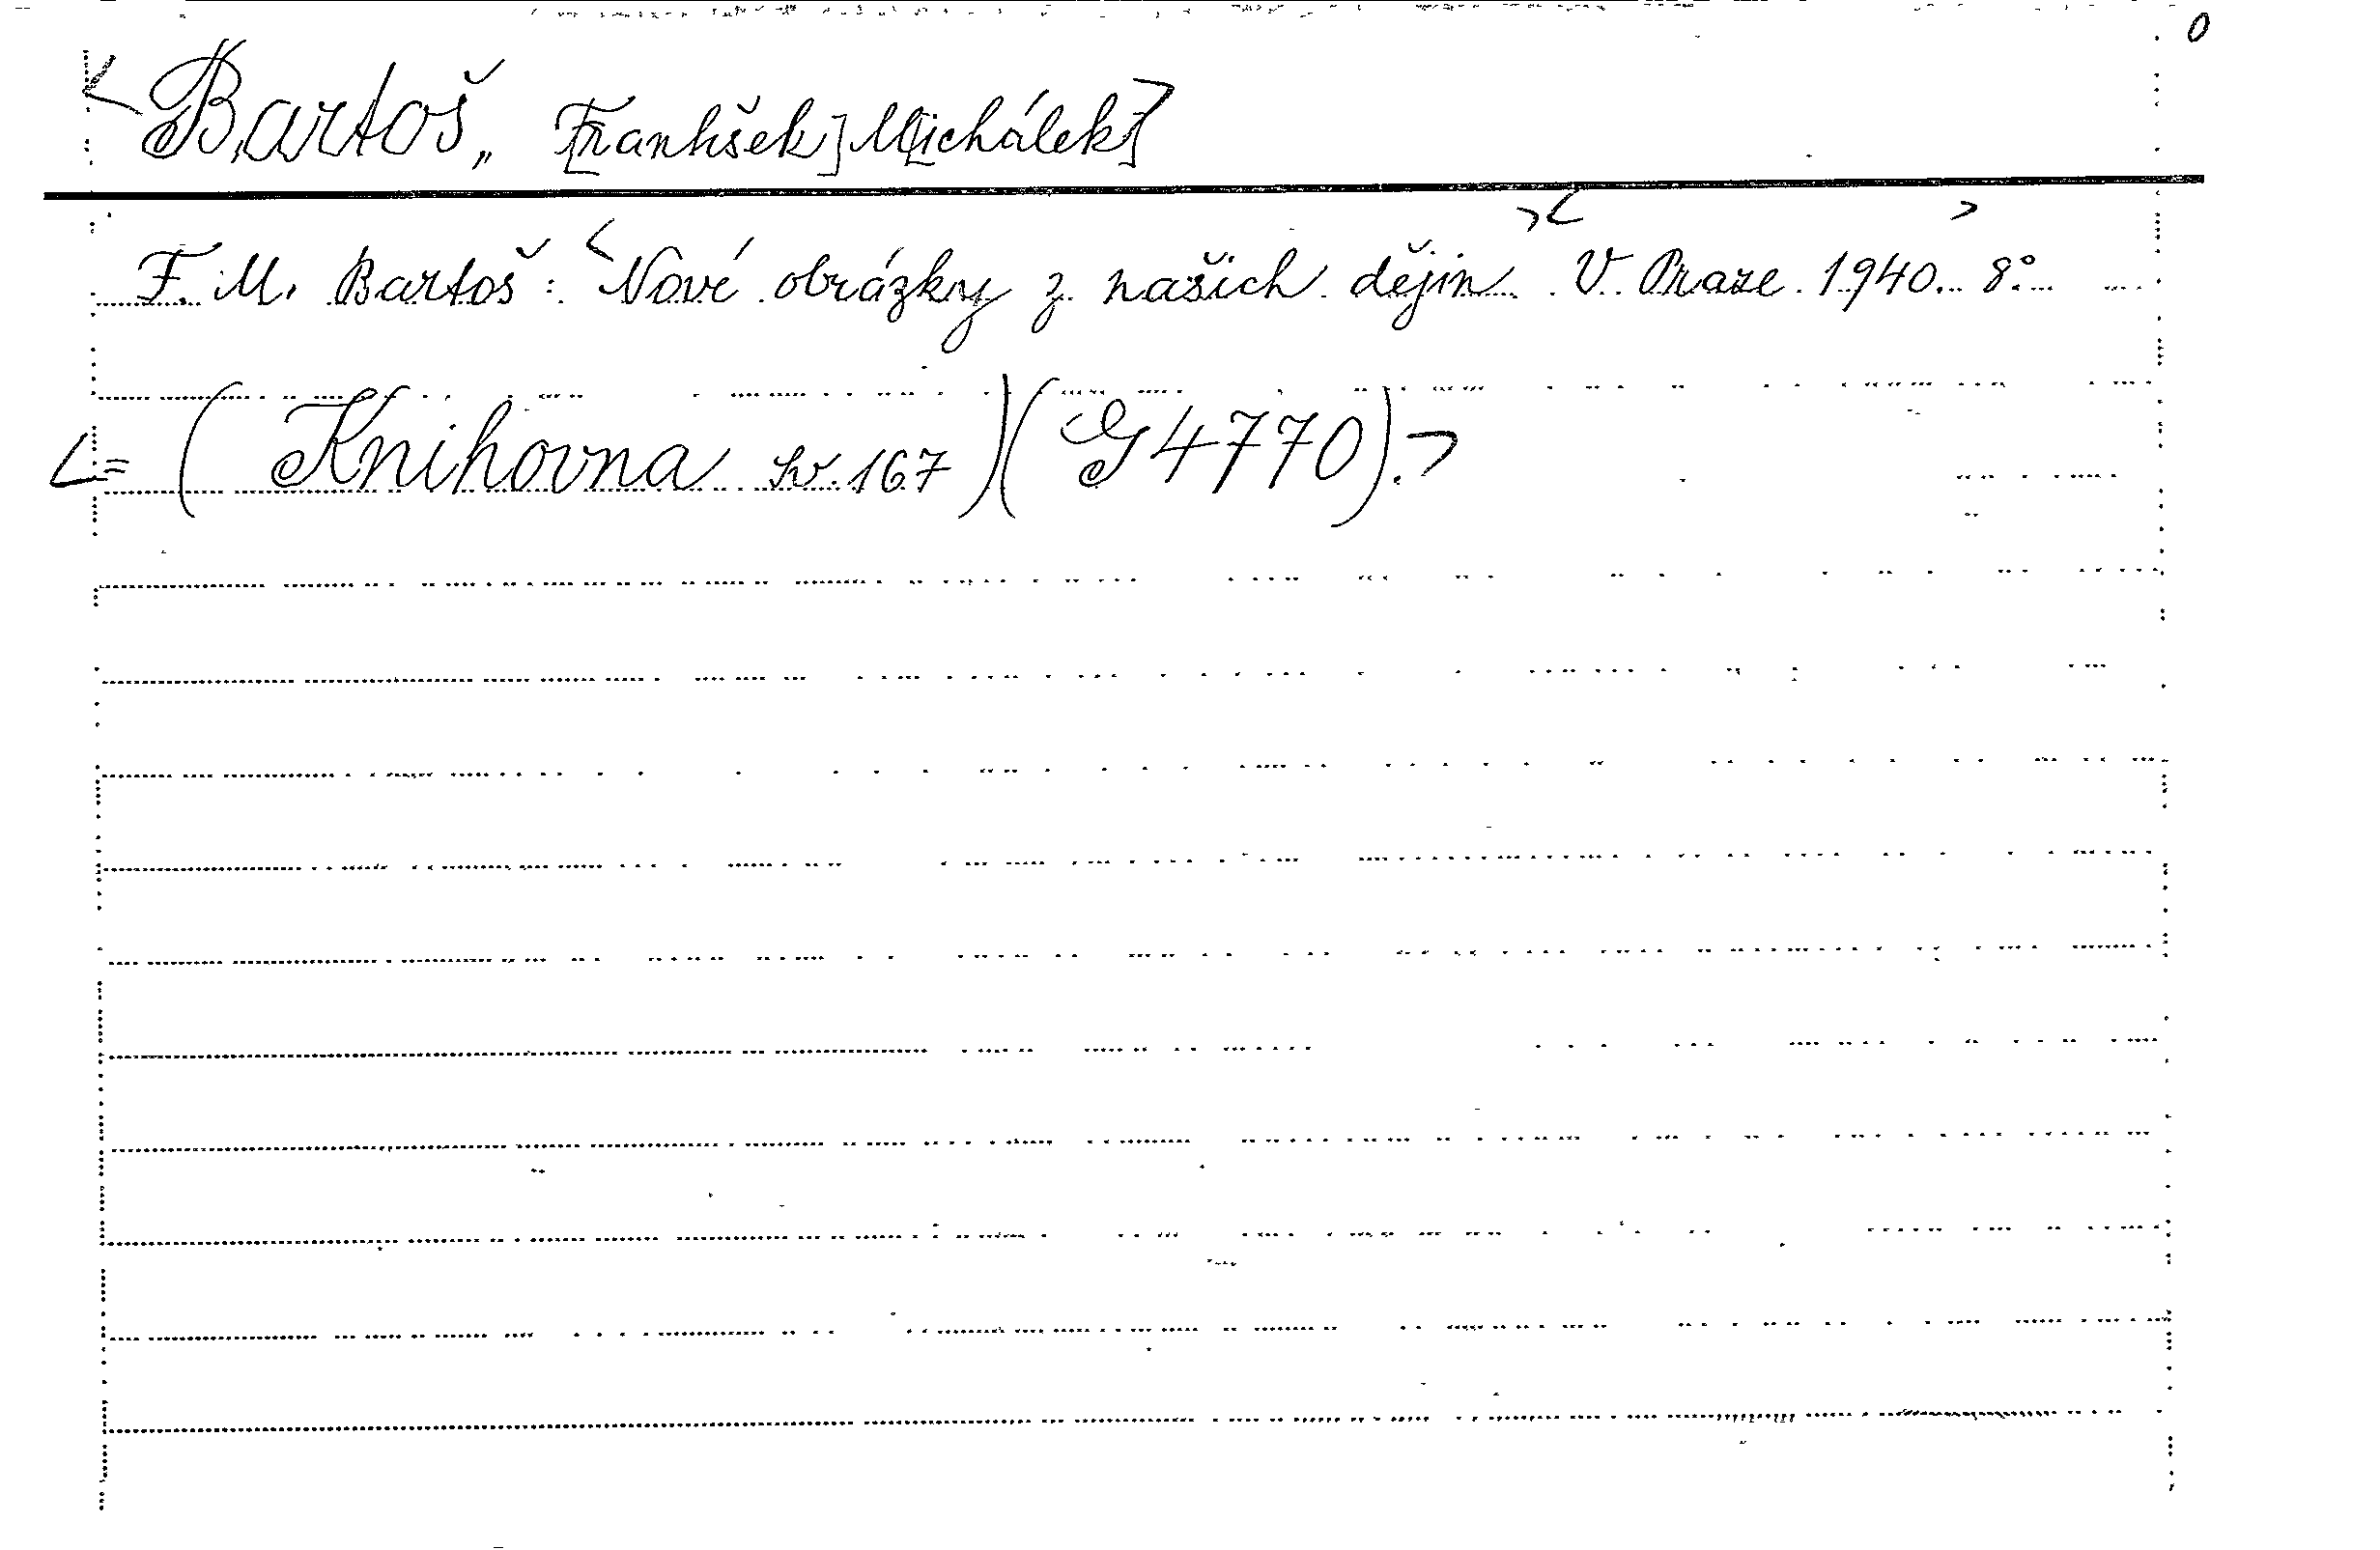 0
<Bartoš, F[rantišek] M[ichálek]>
F. M. Bartoš: <Nové obrázky z našich dějin.> <V Praze 1940. 8°.>
<= (Knihovna sv. 167) (G 4770).>